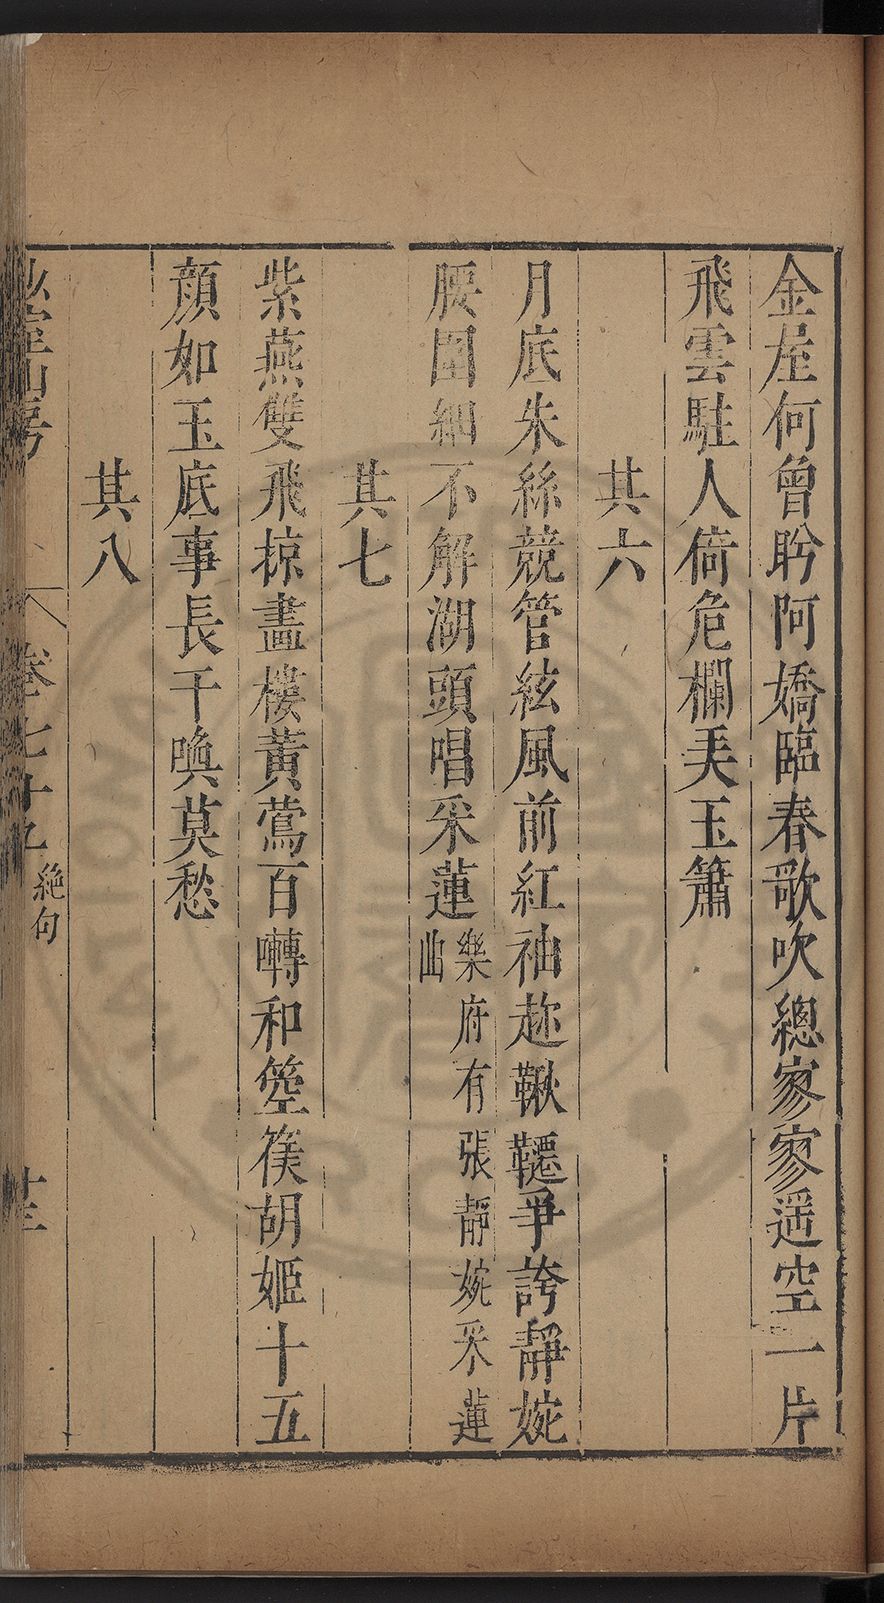 金屋何曾盻阿嬌臨春歌吹總寥寥遥空一片
飛雲駐人倚危欄美玉簫
其六
月底朱絲競管絃風前紅袖趂鞦韆爭誇靜婉
腰圍細不解湖頭唱采蓮樂府有張靜婉采蓮曲
其七
紫燕雙飛掠畵樓黃鶯百囀和箜篌胡姬十五
顔如玉底事長干喚莫愁
其八
卷七十九 絶句